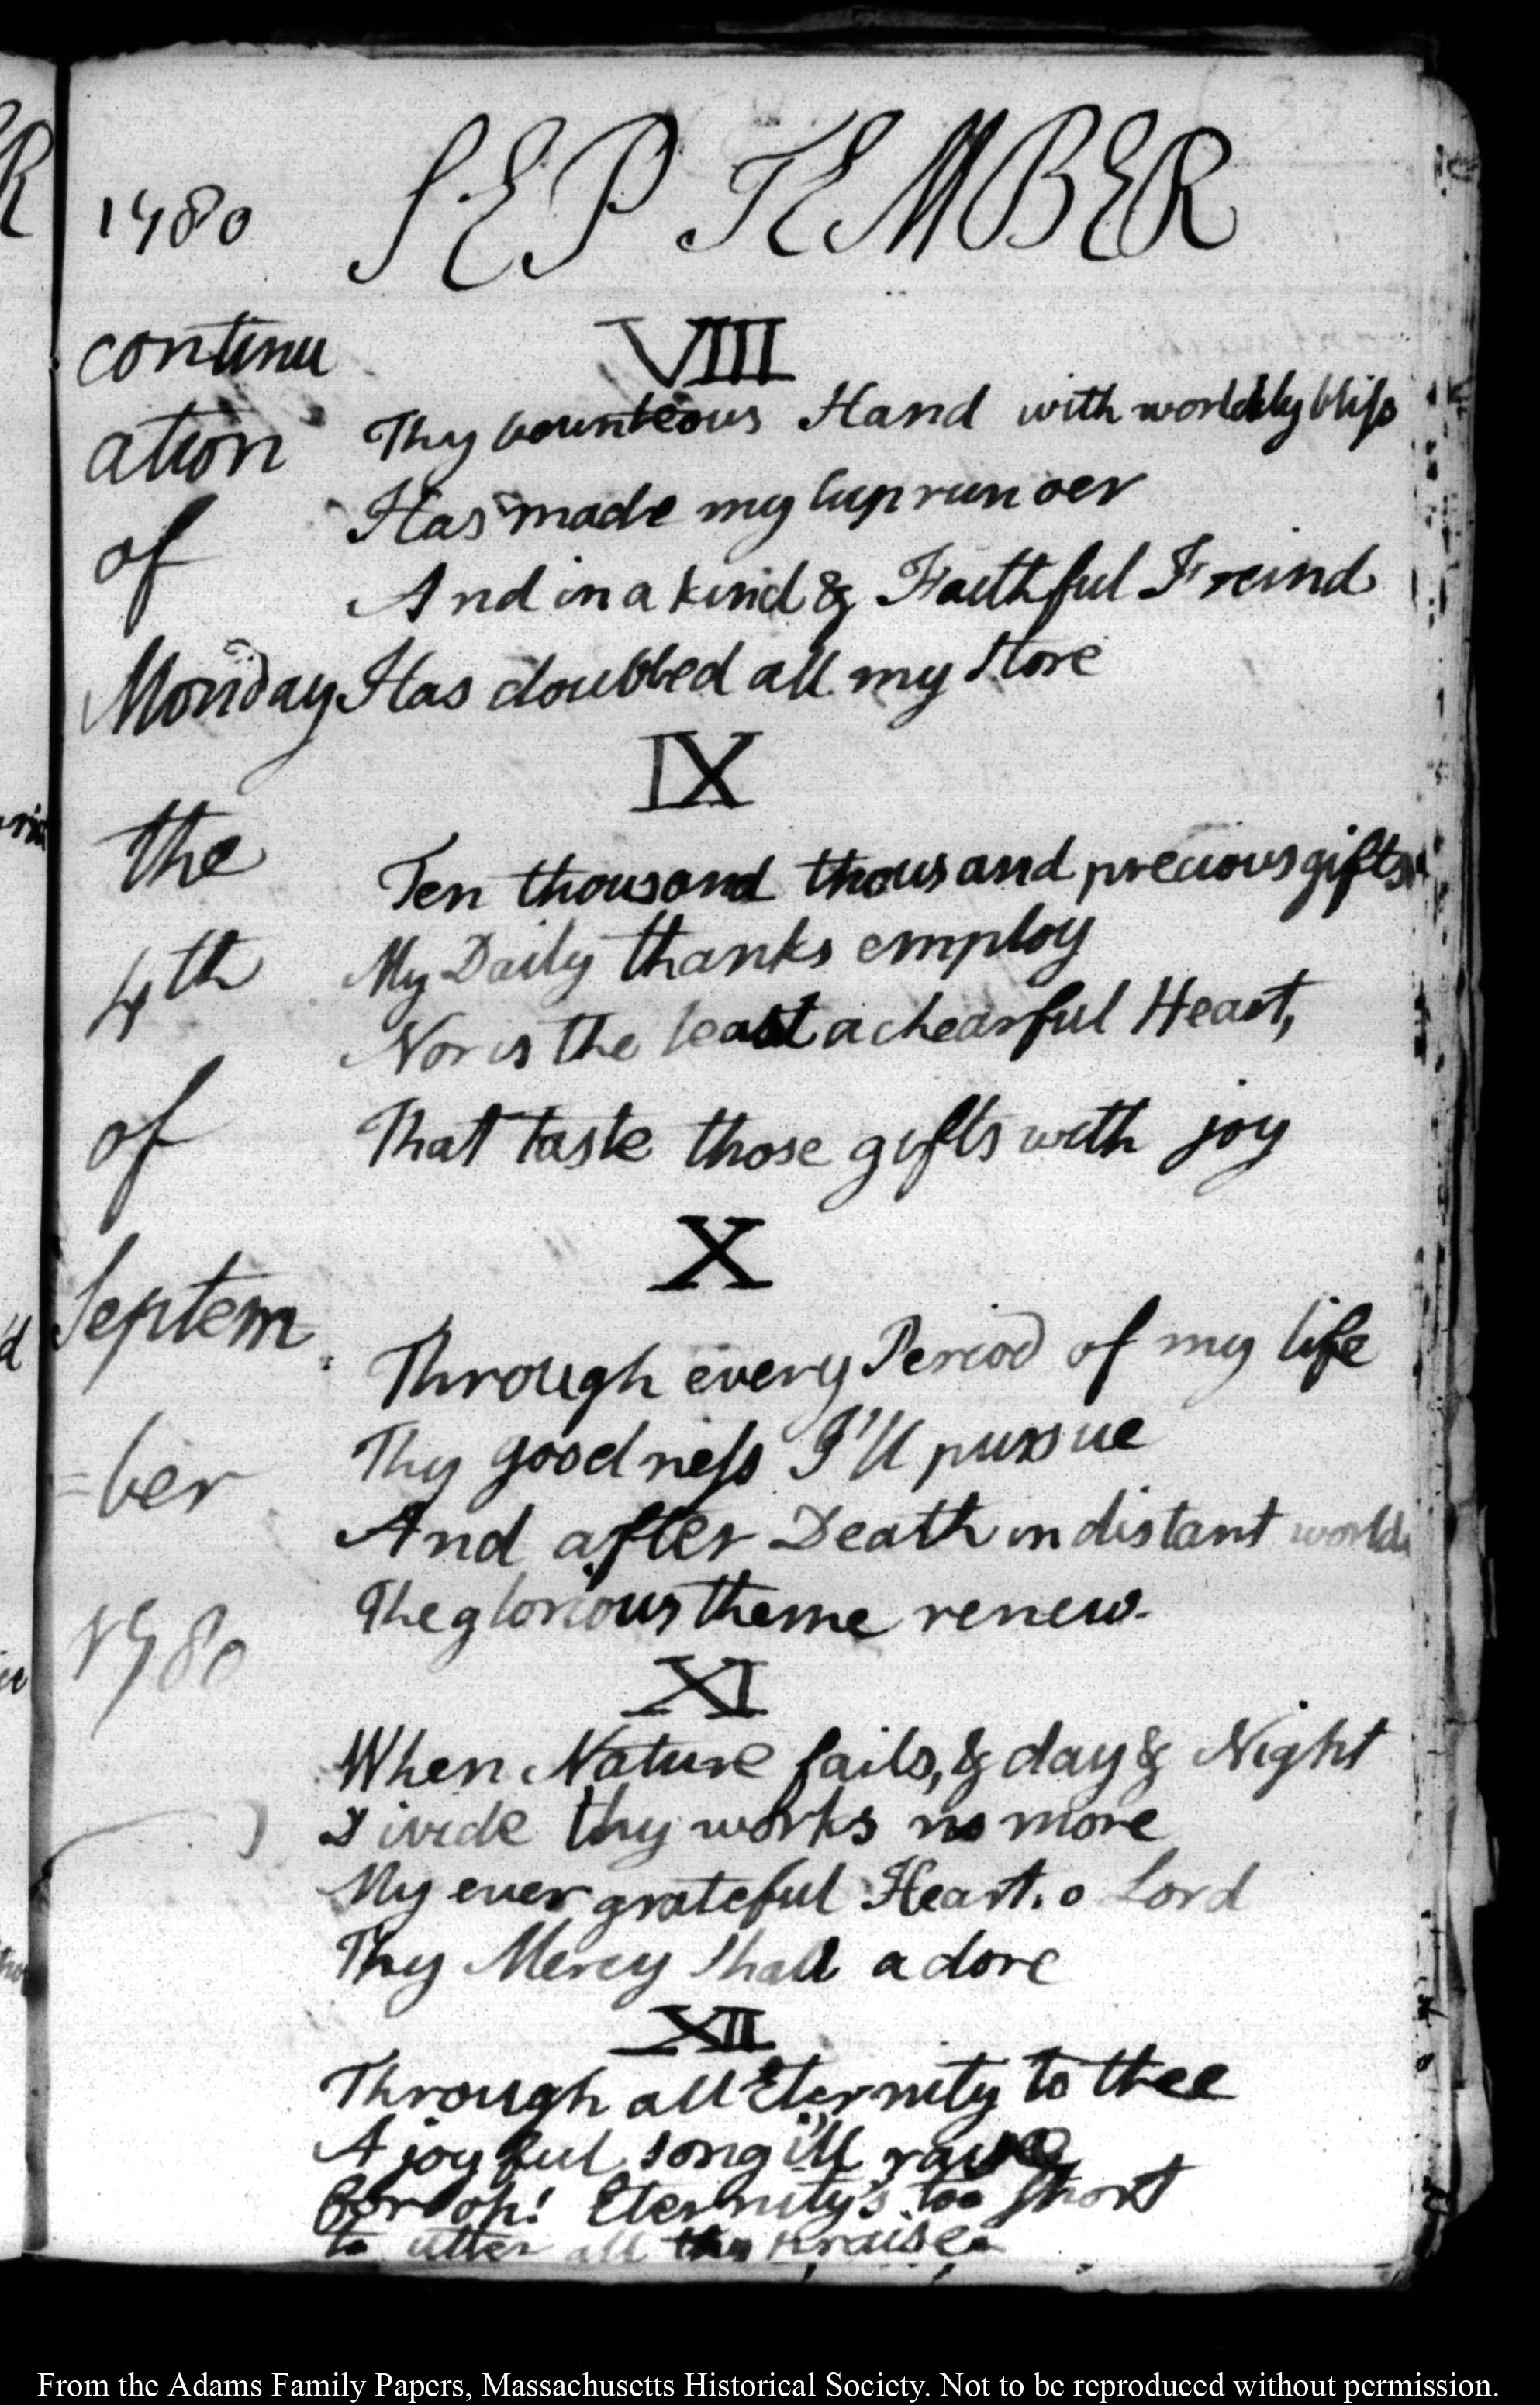 1780 SEPTEMBER
continu
ation
of
Monday
the
4th
of
Septem
=ber
1780
VIII
Thy bounteous Hand with worldly bliss
Has made my cup run oer
And in a kind & Faithful Freind
Has doubled all my store
IX
Ten thousand thousand precious gifts
My Daily thanks employ
Nor is the least a chearful Heart,
That taste those gifts with joy
X
Through every Period of my life
Thy goodness I'll pursue
And after Death in distant worlds
The glorious theme renew.
XI
When Nature fails, & day & Night
Divide thy works no more
My ever grateful Heart. o Lord
Thy Mercy shall adore
XII
Through all Eternity to thee
A joyful song i'll raise
for oh! Eternity's too short
to utter all thy praise
From the Adams Family Papers, Massachusetts Historical Society. Not to be reproduced without permission.